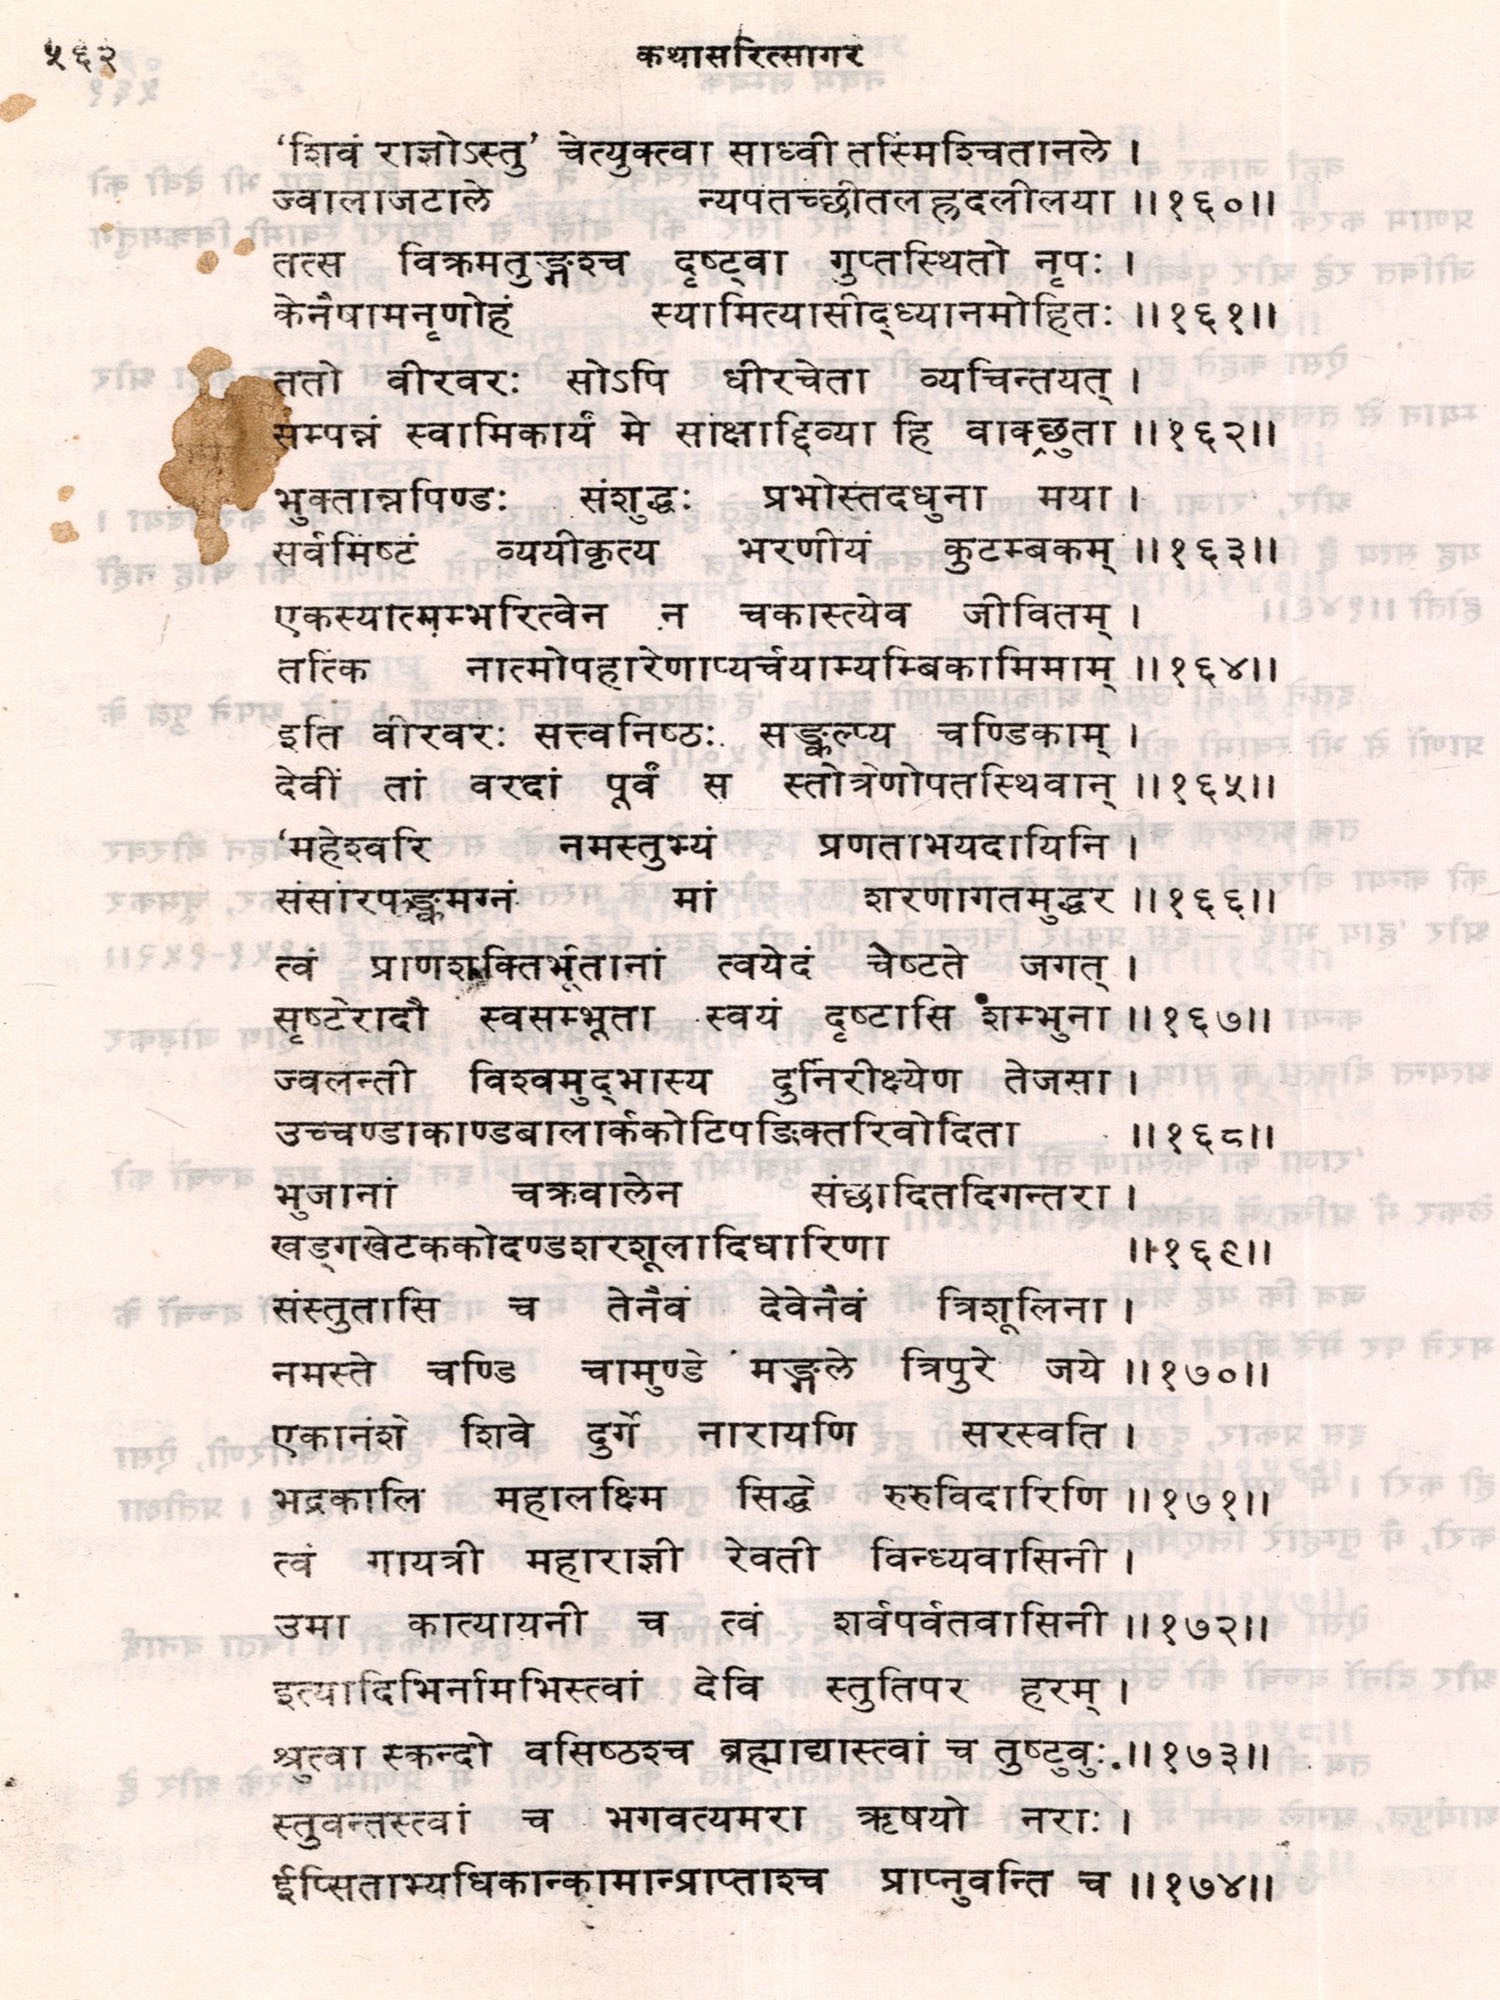 ५६२
कथासरित्सागर
‘शिवं राज्ञोऽस्तु’ चेत्युक्त्वा साध्वी तस्मिंश्चितानले ।
ज्वालाजटाले न्यपतच्छीतलह्रदलीलया ॥१६०॥
तत्स विक्रमतुङ्गश्च दृष्ट्वा गुप्तस्थितो नृपः ।
केनैषामनृणोहं स्यामित्यासीद्ध्यानमोहितः ॥१६१॥
ततो वीरवरः सोऽपि धीरचेता व्यचिन्तयत् ।
सम्पन्नं स्वामिकार्यं मे साक्षाद्दिव्या हि वाक्छ्रुता ॥१६२॥
भुक्तान्नपिण्डः संशुद्धः प्रभोस्तदधुना मया ।
सर्वमिष्टं व्ययीकृत्य भरणीयं कुटम्बकम् ॥१६३॥
एकस्यात्मम्भरित्वेन न चकास्त्येव जीवितम् ।
तत्किं नात्मोपहारेणाप्यर्चयाम्यम्बिकामिमाम् ॥१६४॥
इति वीरवरः सत्त्वनिष्ठः सङ्कल्प्य चण्डिकाम् ।
देवीं तां वरदां पूर्वं स स्तोत्रेणोपतस्थिवान् ॥१६५॥
‘महेश्वरि नमस्तुभ्यं प्रणताभयदायिनि ।
संसारपङ्कमग्नं मां शरणागतमुद्धर ॥१६६॥
त्वं प्राणशक्तिर्भूतानां त्वयेदं चेष्टते जगत् ।
सृष्टेरादौ स्वसम्भूता स्वयं दृष्टासि शम्भुना ॥१६७॥
ज्वलन्ती विश्वमुद्भास्य दुर्निरीक्ष्येण तेजसा ।
उच्चण्डाकाण्डबालार्ककोटिपङ्क्तिरिवोदिता ॥१६८॥
भुजानां चक्रवालेन संछादितदिगन्तरा ।
खड्गखेटककोदण्डशरशूलादिधारिणा ॥१६९॥
संस्तुतासि च तेनैवं देवेनैवं त्रिशूलिना ।
नमस्ते चण्डि चामुण्डे मङ्गले त्रिपुरे जये ॥१७०॥
एकानंशे शिवे दुर्गे नारायणि सरस्वति ।
भद्रकालि महालक्ष्मि सिद्धे रुरुविदारिणि ॥१७१॥
त्वं गायत्री महाराज्ञी रेवती विन्ध्यवासिनी ।
उमा कात्यायनी च त्वं शर्वपर्वतवासिनी ॥१७२॥
इत्यादिभिर्नामभिस्त्वां देवि स्तुतिपर हरम् ।
श्रुत्वा स्कन्दो वसिष्ठश्च ब्रह्माद्यास्त्वां च तुष्टुवुः ॥१७३॥
स्तुवन्तस्त्वां च भगवत्यमरा ऋषयो नराः ।
ईप्सिताभ्यधिकान्कामान्प्राप्ताश्च प्राप्नुवन्ति च ॥१७४॥